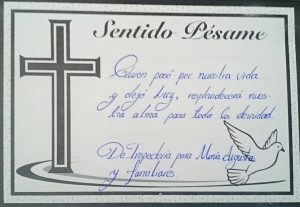 Sentido Pésame
Quien pasó por nuestra vida
y dejó luz, resplandecerá nues-
tra alma para toda la eternidad.
De Inspectoría para María
y familiares.